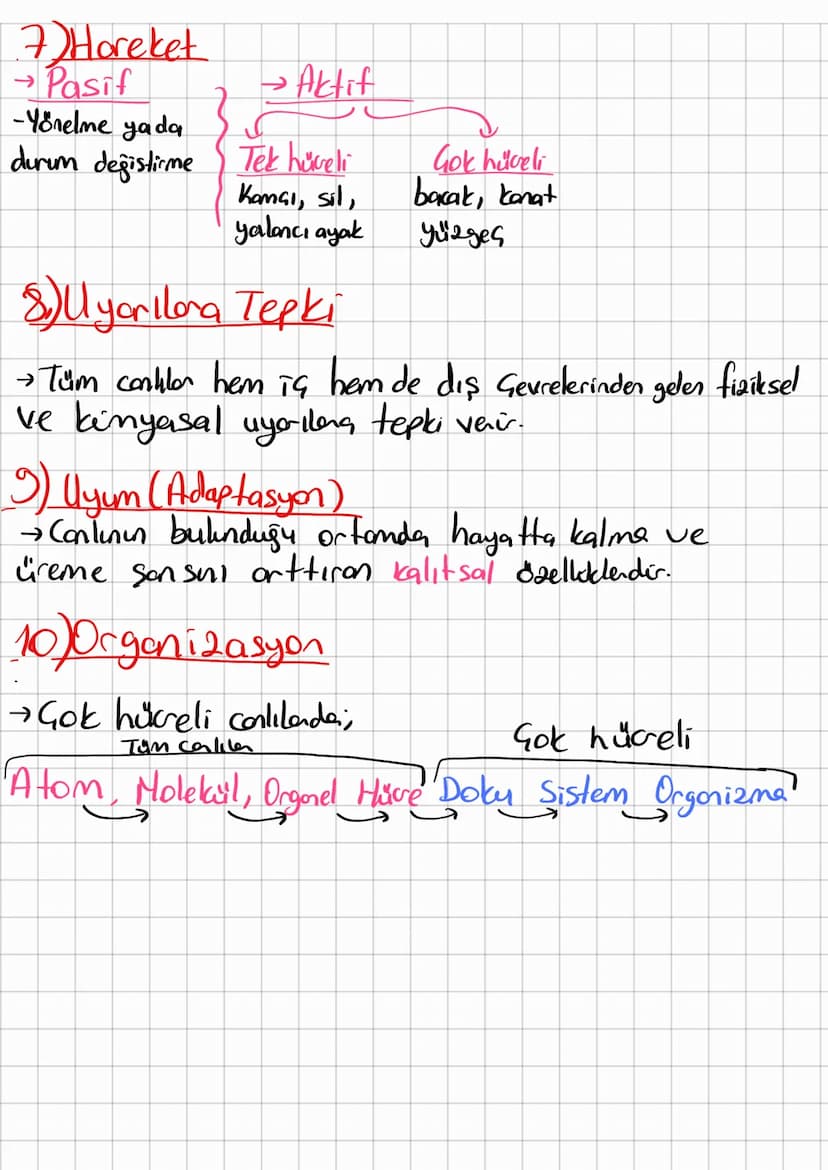 7)Hareket
→ Pasif → Aktif
-Yönelme yada
durum değistirme
Tek hücreli Çok hücreli
Kamçı, sil, bacak, kanat
yalancı ayak yüzgeç
8)Uyarılara Tepki
→ Tüm canlılar hem iç hem de dış Çevrelerinden gelen fiziksel
ve kimyasal uyarılara tepki verir.
9) Uyum (Adaptasyon)
→ Canlının bulunduğu ortamda hayatta kalma ve
üreme şansını arttıran kalıtsal özelliklerdir.
10)Organizasyon
→ Çok hücreli canlılarda;
Tüm canlılar Çok hücreli
Atom, Molekül, Organel Hücre Doku Sistem Organizma